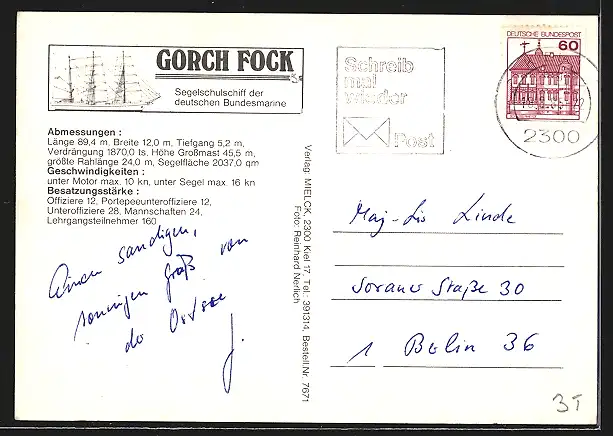 GORCH FOCK
Segelschulschiff der
deutschen Bundesmarine
Abmessungen :
Länge 89,4 m, Breite 12,0 m, Tiefgang 5,2 m,
Verdrängung 1870,0 ts, Höhe Großmast 45,5 m,
größte Rahlänge 24,0 m, Segelfläche 2037,0 qm
Geschwindigkeiten :
unter Motor max. 10 kn, unter Segel max. 16 kn
Besatzungsstärke :
Offiziere 12, Portepeeunteroffiziere 12,
Unteroffiziere 28, Mannschaften 24,
Lehrgangsteilnehmer 160
Einen sandigen,
sonnigen Gruß von
der Ostsee
J.
Verlag: MIELCK, 2300 Kiel 17, Tel.: 391314, Bestell.Nr. 7671
Foto: Reinhard Nerlich
Schreib
mal
wieder
Post
DEUTSCHE BUNDESPOST
60
2300
Maj-Lis Linde
Sorauer Straße 30
1 Berlin 36
3T